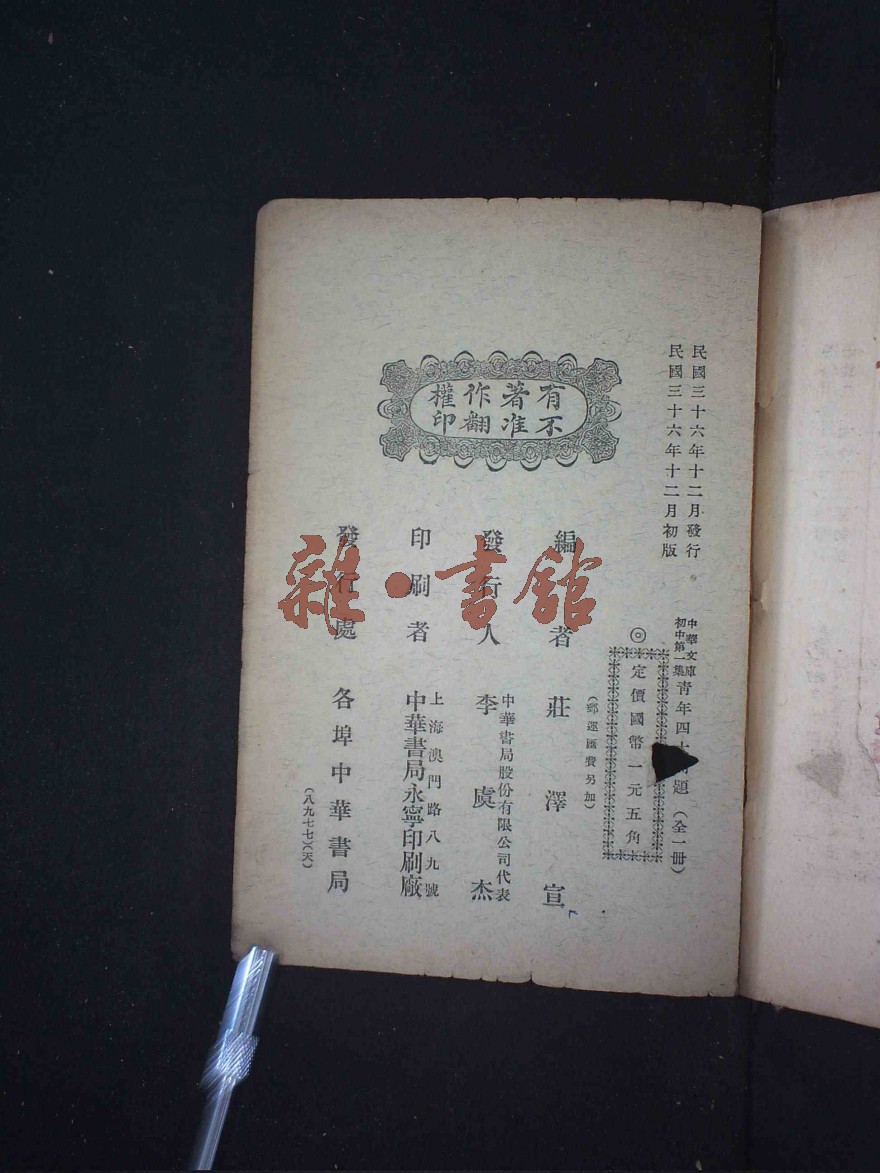 民國三十六年十二月發行
民國三十六年十二月初版
中華文庫
初中第一集
青年四十問題（全一冊）
◎定價國幣一元五角
（郵運匯費另加）
有著作權
不准翻印
編者 莊澤宣
發行人 中華書局股份有限公司代表
李虞杰
印刷者 上海澳門路八九號
中華書局永寧印刷廠
發行處 各埠中華書局
（八九七七）（天）
雜·書館